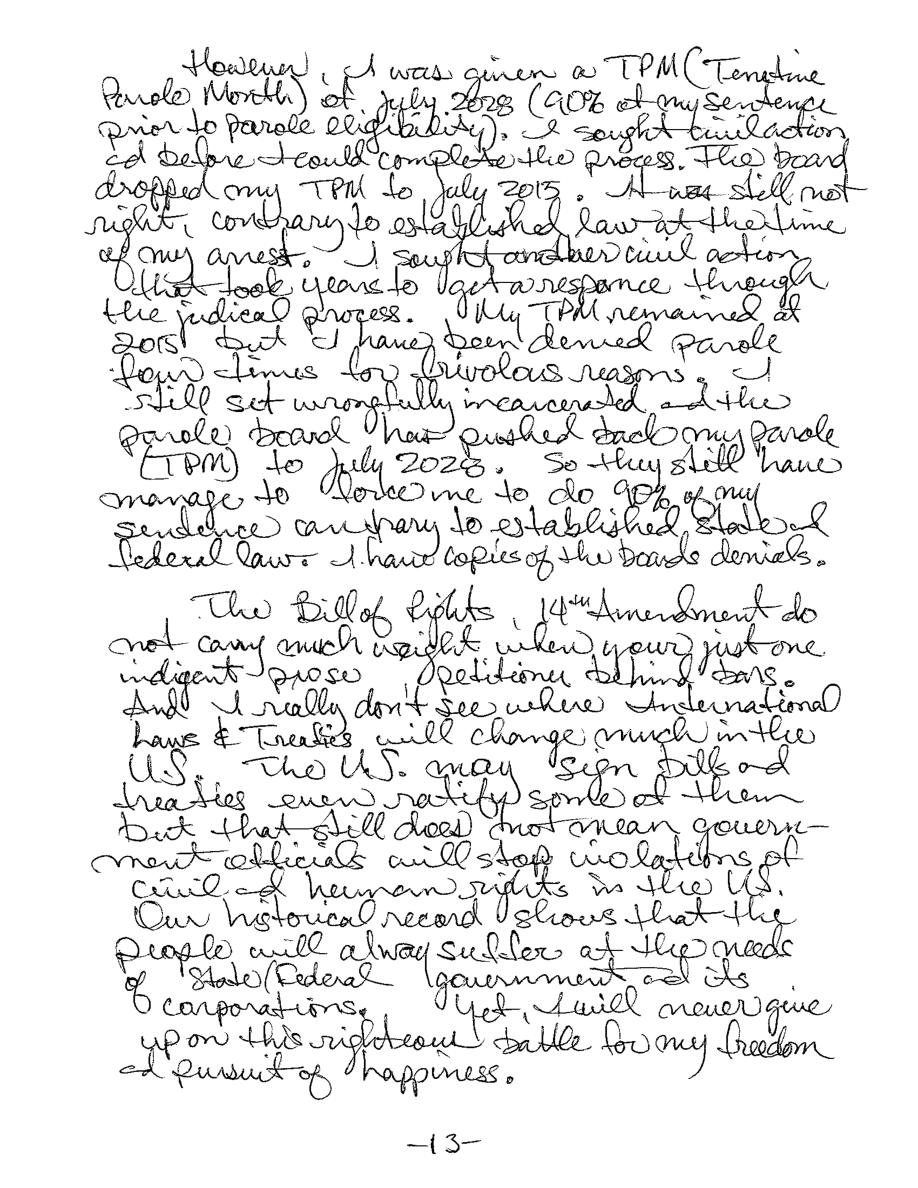 However, I was given a TPM (Tenetive
Parole Month) of July 2028 (90% of my sentence
prior to parole eligibility). I sought civil action
ad before I could complete the process. The board
dropped my TPM to July 2015. It was still not
right, contrary to established law at the time
of my arrest. I sought another civil action
that took years to get a responce through
the judical process. My TPM remained at
2015 but I have been denied parole
four times for frivolous reasons. I
still set wrongfully incarcerated ad the
parole board has pushed back my parole
(TPM) to July 2028. So they still have
manage to force me to do 90% of my
sendence contrary to established state ad
federal law. I have copies of the boards denials.
The Bill of Rights, 14th Amendment do
not carry much weight when your just one
indigent prose petitioner behind bars.
And I really don't see where International
Laws & Treaties will change much in the
U.S. The U.S. may sign bills ad
treaties even ratify some of them
but that still does not mean govern-
ment officials will stop violations of
civil ad human rights in the U.S.
Our historical record shows that the
people will alway suffer at the needs
of State/Federal government ad its
corporations. Yet, I will never give
up on this righteous battle for my freedom
ad pursuit of happiness.
-13-